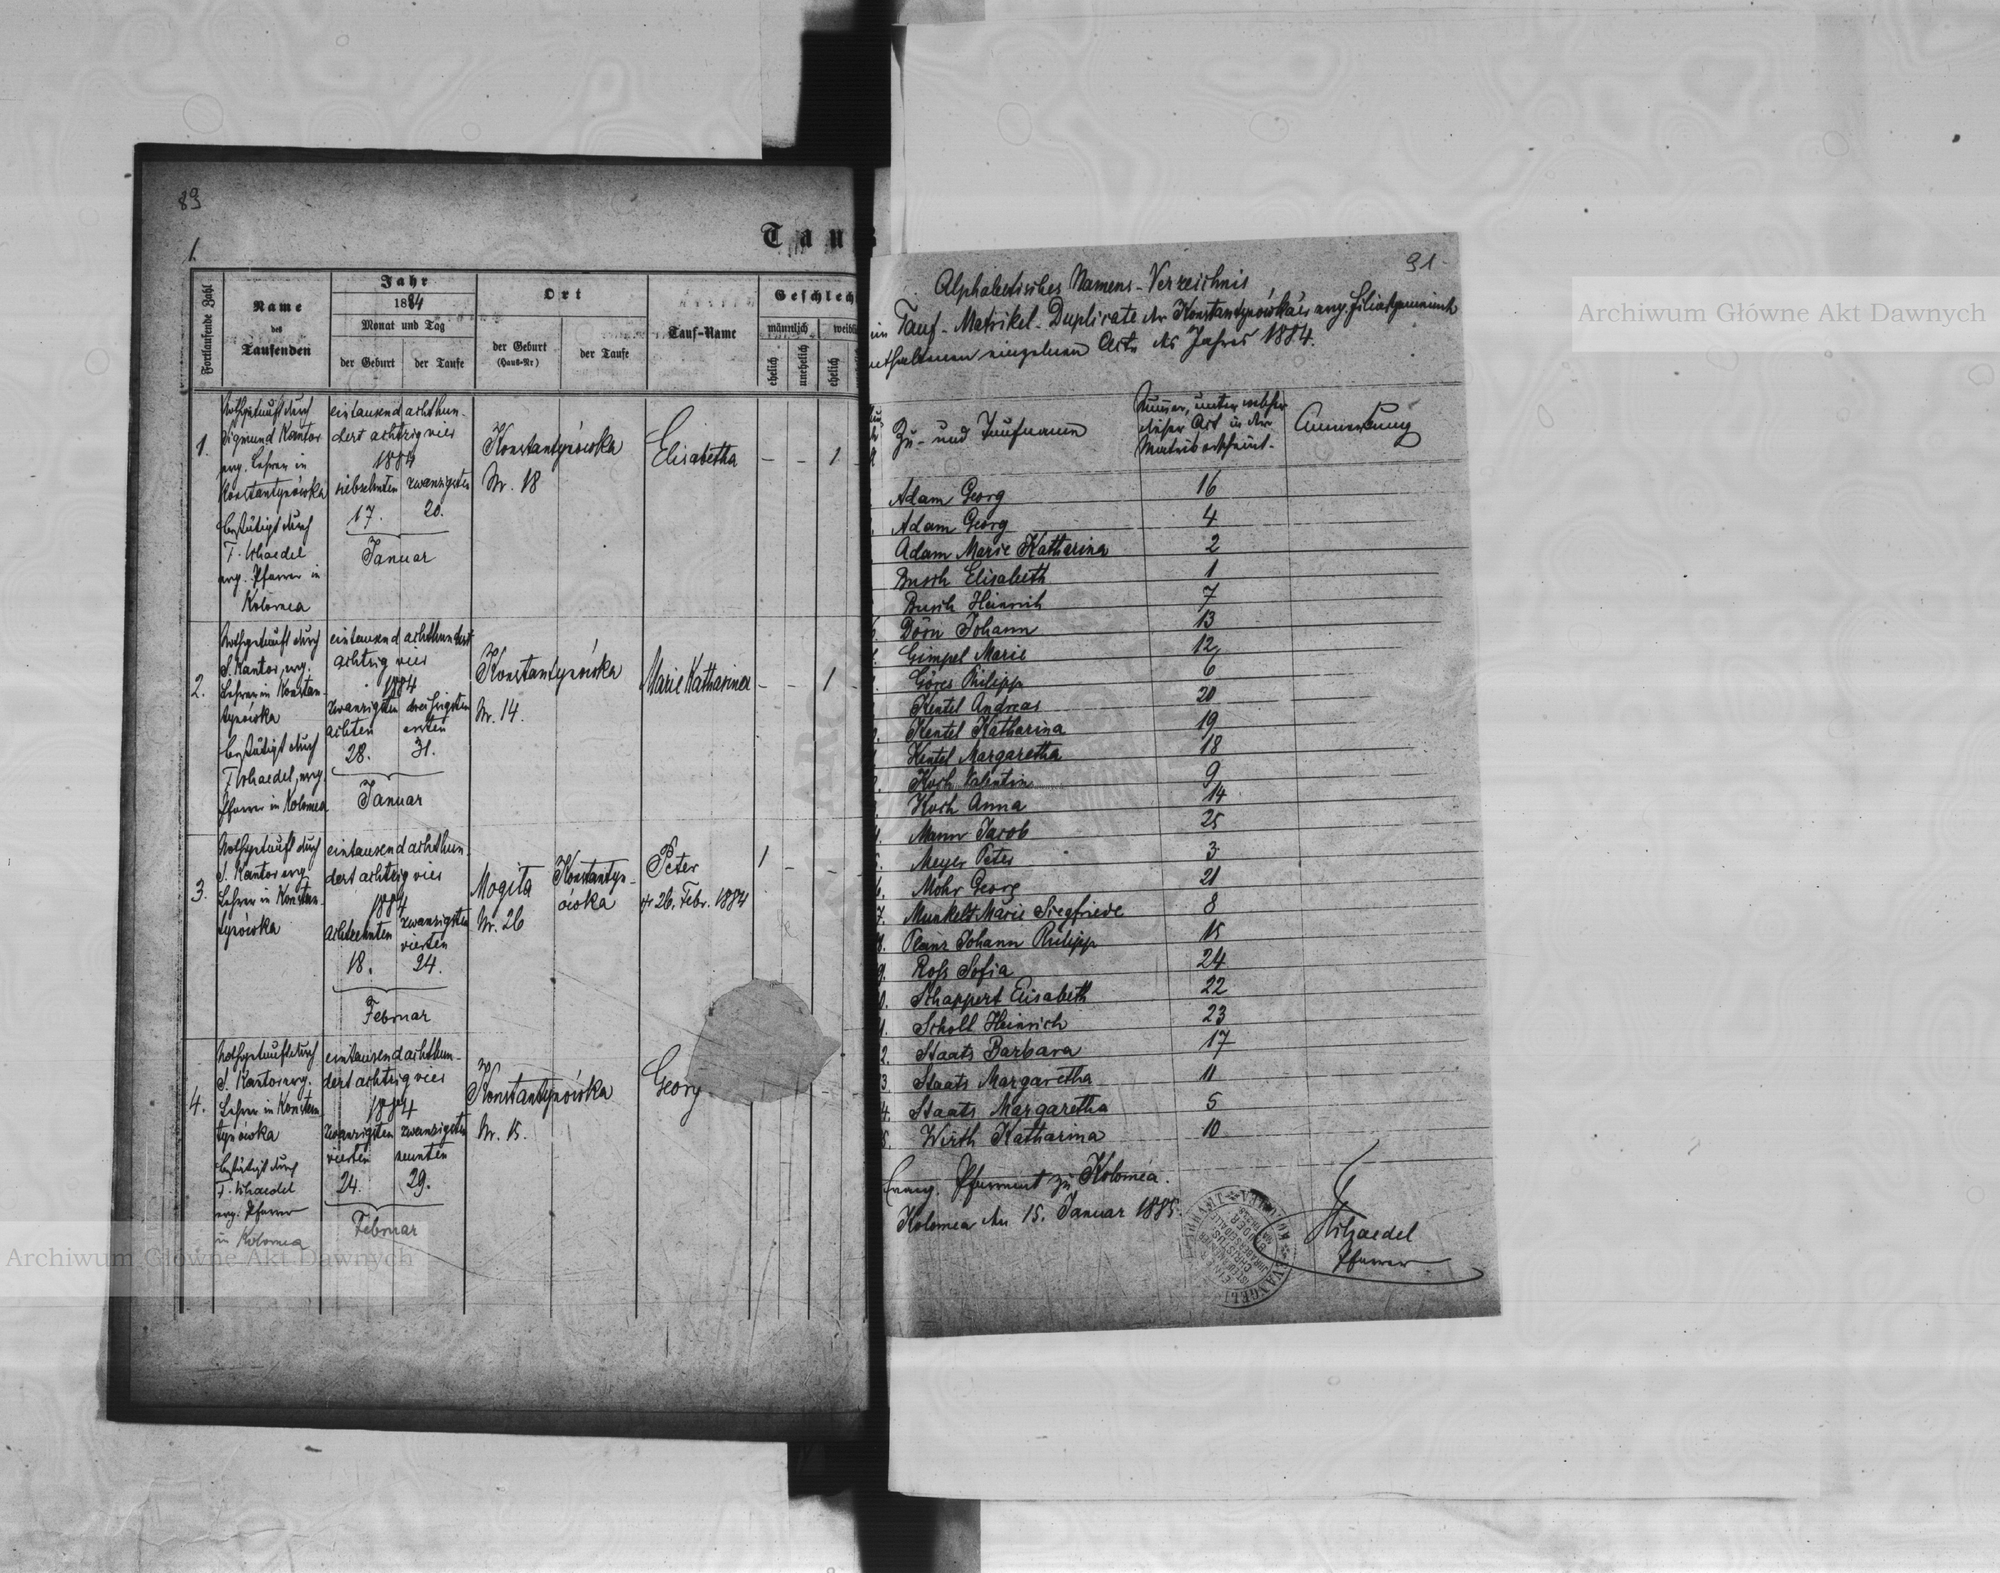 89
1.
Tau
Fortlaufende Zahl
Name
des
Taufenden
Jahr
1884
Monat und Tag
der Geburt
der Taufe
Ort
der Geburt
(Haus-Nr)
der Taufe
Tauf-Name
Geschlech
männlich
weibl
ehelich
unehelich
ehelich
1.
Nothgetauft durch
Sigmund Kantor
evg. Lehrer in
Konstantynówka
bestätigt durch
F. Schaedel
evg. Pfarrer in
Kolomea
eintausend achthun-
dert achtzig vier
1884
siebzehnten zwanzigsten
17. 20.
Januar
Konstantynówka
Nr. 18
Elisabetha
- - 1 -
2.
Nothgetauft durch
S. Kantor, evg.
Lehrer in Konstan-
tynówka
bestätigt durch
F. Schaedel, evg.
Pfarrer in Kolomea
eintausend achthundert
achtzig vier
1884
zwanzigsten dreißigsten
achten ersten
28. 31.
Januar
Konstantynówka
Nr. 14.
Marie Katharina
- - 1 -
3.
Nothgetauft durch
S. Kantor evg.
Lehrer in Konstan-
tynówka
eintausend achthun-
dert achtzig vier
1884
achtzehnten zwanzigsten
vierten
18. 24.
Februar
Mogila
Nr. 26
Konstantyn-
ówka
Peter
26. Febr. 1884
1 - - -
4.
Nothgetauft durch
S. Kantor evg.
Lehrer in Konstan
tynówka
bestätigt durch
F. Schaedel
evg. Pfarrer
in Kolomea
eintausend achthun-
dert achtzig vier
1884
zwanzigsten zwanzigsten
vierten neunten
24. 29.
Februar
Konstantynówka
Nr. 15.
Georg
91
Alphabetisches Namens-Verzeichnis
in Tauf-Matrikel-Duplicate der Konstantynówka'er evg. Filialgemeinde
enthaltenen einzelnen Acte des Jahres 1884.
Zu- und Taufname
Nummer, unter welcher
dieser Act in der
Matrik erscheint.
Anmerkung
Adam Georg 16
Adam Georg 4
Adam Marie Katharina 2
Busch Elisabeth 1
Busch Heinrich 7
Dörr Johann 13
Gimpel Marie 12
Göres Philipp 6
Kentel Andreas 20
Kentel Katharina 19
Kentel Margaretha 18
Koch Valentin 9
Koch Anna 14
Mann Jacob 25
Meyer Peter 3
Mohr Georg 21
7. Munkelt Marie Siegfriede 8
8. Plenz Johann Philipp 15
9. Roß Sofia 24
0. Schappert Elisabeth 22
1. Scholl Heinrich 23
2. Staats Barbara 17
3. Staats Margaretha 11
4. Staats Margaretha 5
5. Wirth Katharina 10
Evang. Pfarramt zu Kolomea.
Kolomea den 15. Januar 1885.
Schaedel
Pfarrer
Archiwum Główne Akt Dawnych
Archiwum Główne Akt Dawnych